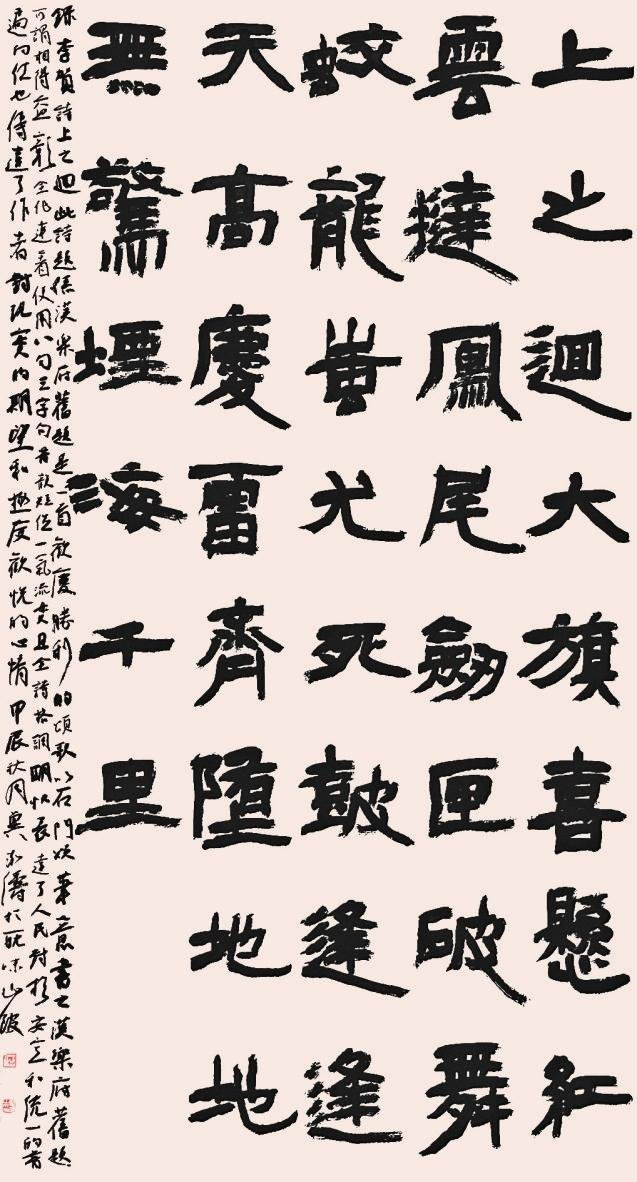 上之迴大旗喜懸紅
雲撻鳳尾劒匣破舞
蛟龍蚩尤死鼓逢逢
天高慶雷齊墮地地
無驚煙海千里
錄李賀詩上之迴此詩題借漢樂府舊題是一首歡慶勝利的頌歌以石門頌筆意書之漢樂府舊題
可謂相得益彰全作連着使用八句三字句音韻短促一氣流走且全詩格調明快表達了人民對於安定和統一的普
遍向往也傳達了作者對現實的期望和極度歡悅的心情甲辰秋月濤於味山